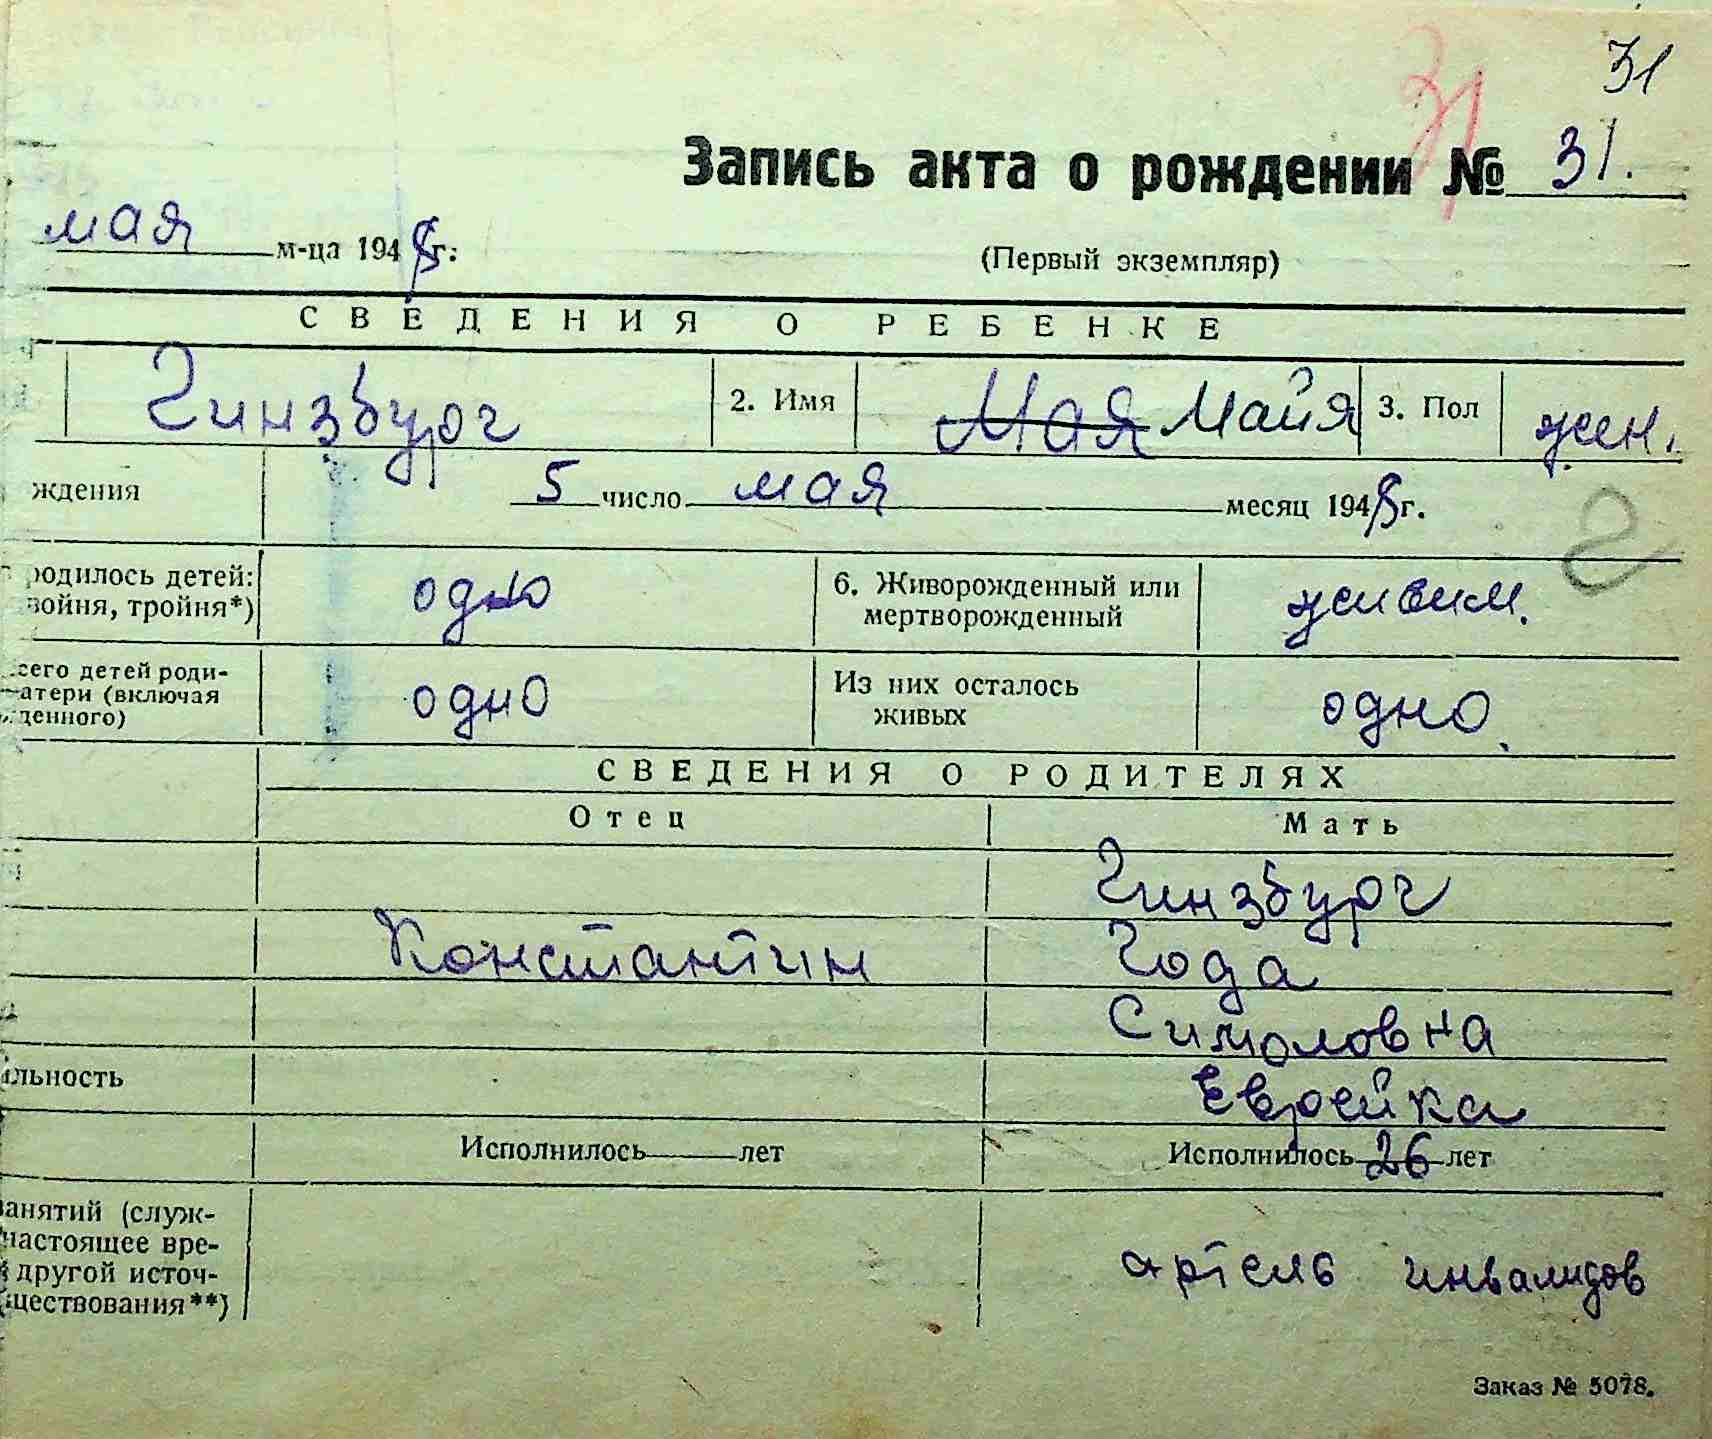 31
31
Запись акта о рождении № 31.
мая м-ца 1945 г.
(Первый экземпляр)
СВЕДЕНИЯ О РЕБЕНКЕ
Гинзбург 2. Имя Мая Майя 3. Пол жен.
ждения 5 число мая месяц 1945 г.
родилось детей: одно 6. Живорожденный или живым.
войня, тройня*) мертворожденный
сего детей роди- одно Из них осталось одно
атери (включая живых
денного)
СВЕДЕНИЯ О РОДИТЕЛЯХ
Отец Мать
Гинзбург
Константин Года
Симоловна
льность Еврейка
Исполнилось лет Исполнилось 26 лет
анятий (служ-
настоящее вре- артель инвалидов
другой источ-
ществования**)
Заказ № 5078.